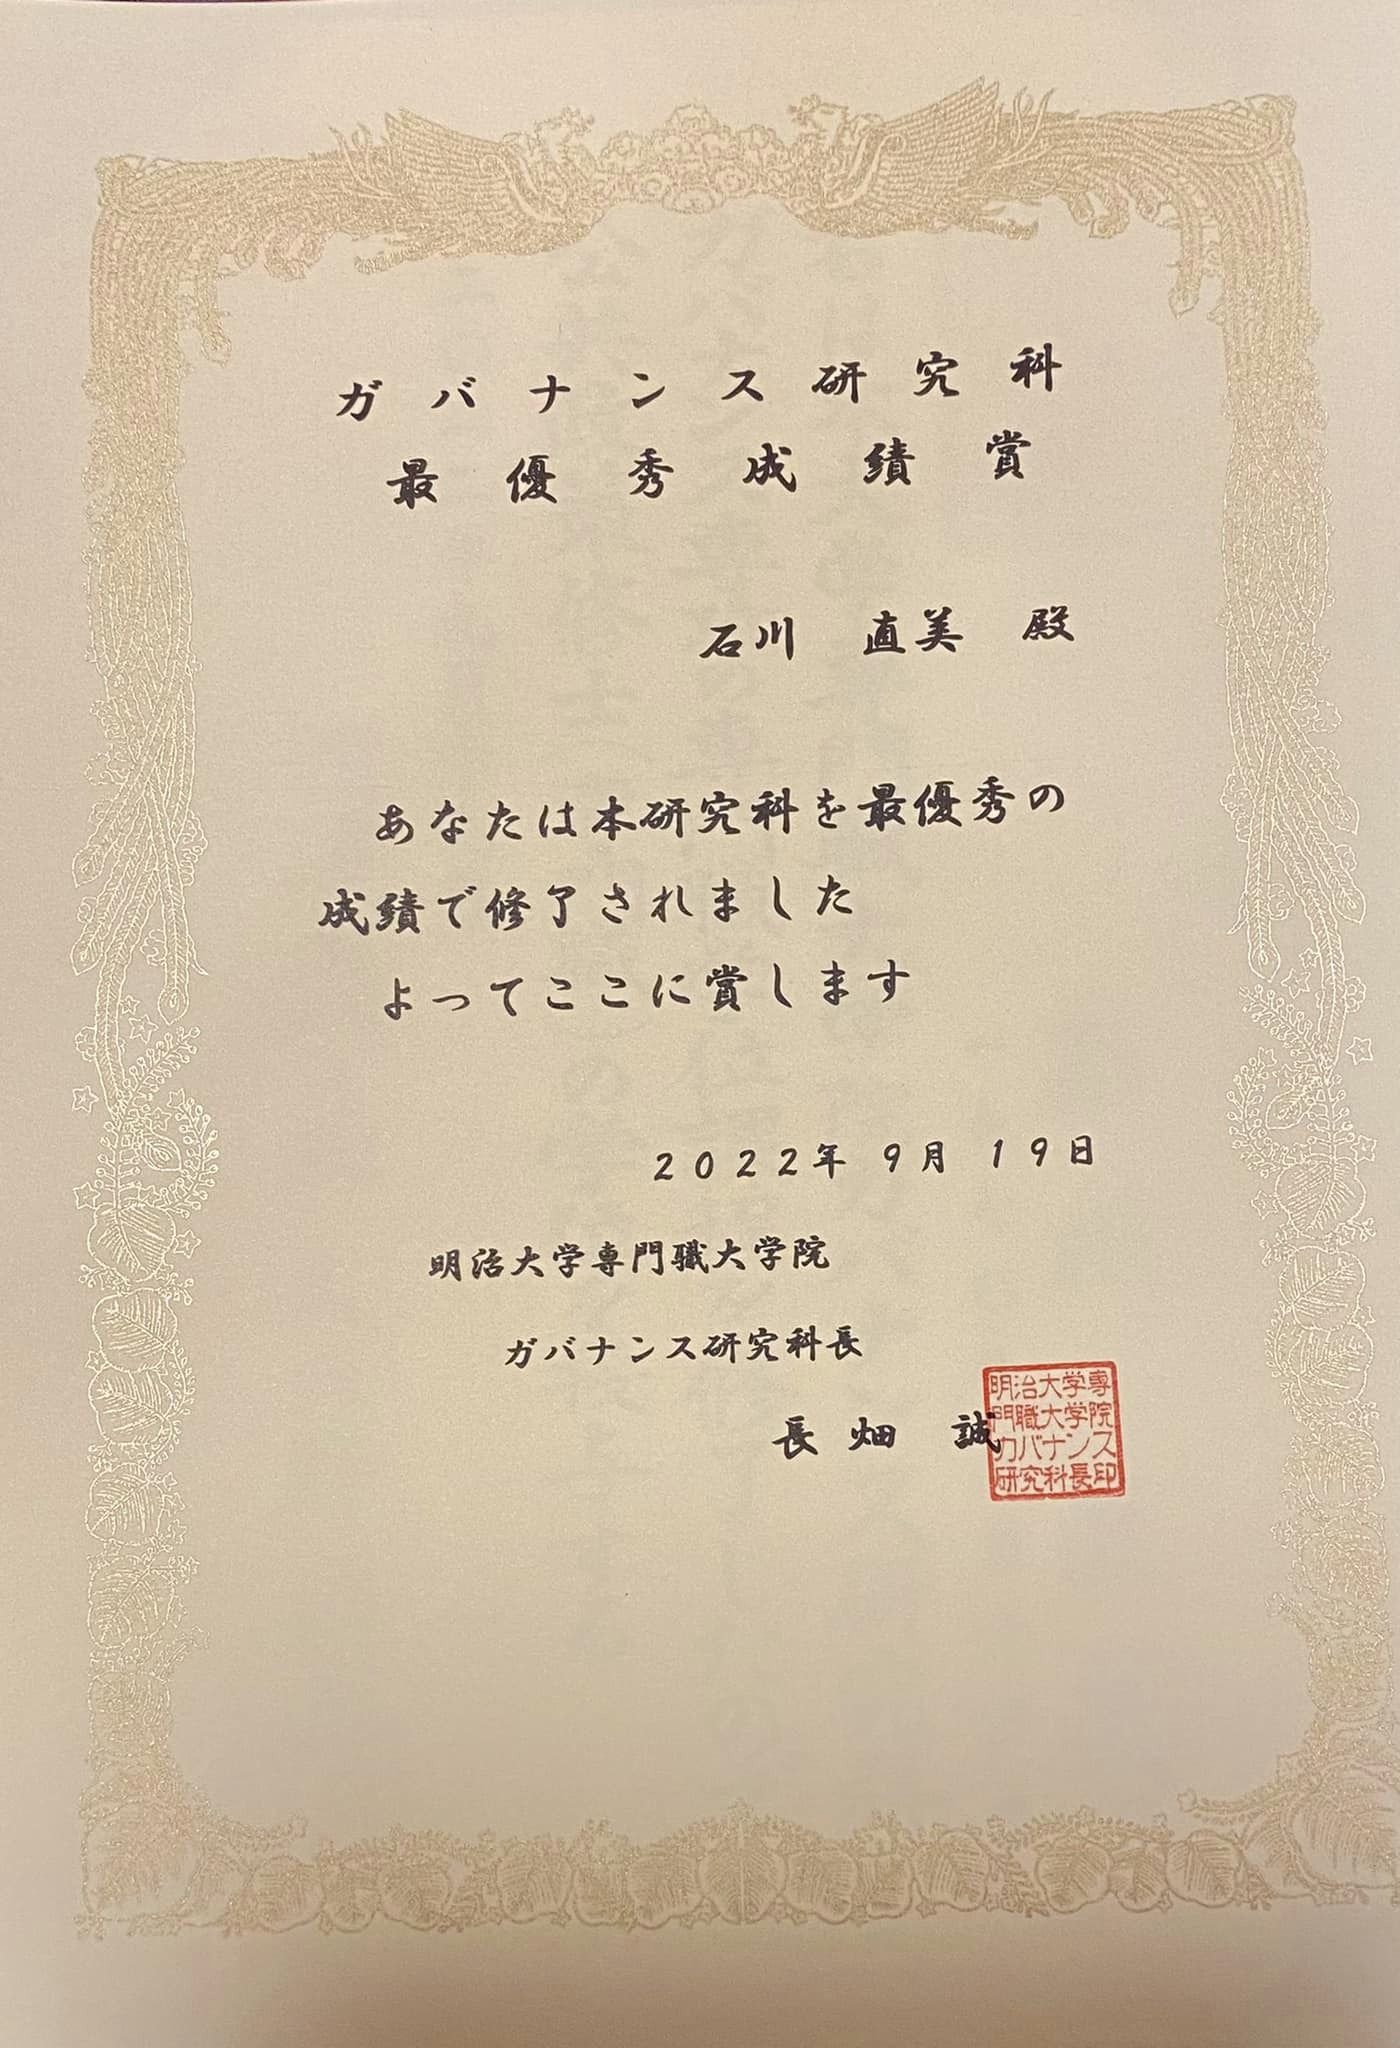 ガバナンス研究科
最優秀成績賞
石川 直美 殿
あなたは本研究科を最優秀の
成績で修了されました
よってここに賞します
2022年 9月 19日
明治大学専門職大学院
ガバナンス研究科長
長畑 誠
明治大学専
門職大学院
ガバナンス
研究科長印